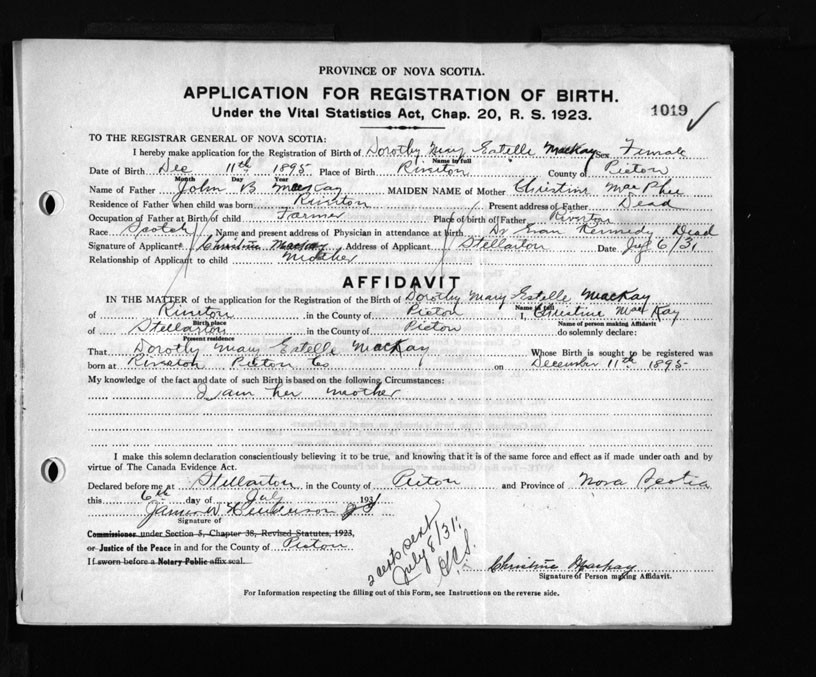 PROVINCE OF NOVA SCOTIA.
APPLICATION FOR REGISTRATION OF BIRTH.
1019
Under the Vital Statistics Act, Chap. 20, R. S. 1923.
TO THE REGISTRAR GENERAL OF NOVA SCOTIA:
I hereby make application for the Registration of Birth of Dorothy Mary Estelle MacKay Sex Female
Name in full
Date of Birth Dec 11th 1895 Place of Birth County of Picton
Month Day Year
Name of Father John B MacKay MAIDEN NAME of Mother Christine MacPhie
Residence of Father when child was born Present address of Father Dead
Occupation of Father at Birth of child Farmer Place of birth of Father
Race Scotch Name and present address of Physician in attendance at birth Dr Evan Kennedy Dead
Signature of Applicant Christine MacKay Address of Applicant Stellarton Date July 6/31
Relationship of Applicant to child Mother
AFFIDAVIT
IN THE MATTER of the application for the Registration of the Birth of Dorothy Mary Estelle MacKay
Name in full
of in the County of Picton I, Christine MacKay
Birth place Name of person making Affidavit
of Stellarton in the County of Picton do solemnly declare:
Present residence
That Dorothy Mary Estelle MacKay Whose Birth is sought to be registered was
born at Picton Co on December 11th 1895
My knowledge of the fact and date of such Birth is based on the following Circumstances:
I am her mother
I make this solemn declaration conscientiously believing it to be true, and knowing that it is of the same force and effect as if made under oath and by
virtue of The Canada Evidence Act.
Declared before me at Stellarton in the County of Picton and Province of Nova Scotia
this 6th day of July 1931
James W Henderson JP
Signature of
Commissioner under Section 5, Chapter 38, Revised Statutes, 1923,
or Justice of the Peace in and for the County of Picton
If sworn before a Notary Public affix seal.
2 certs sent
July 8/31.
Christine MacKay
Signature of Person making Affidavit.
For Information respecting the filling out of this Form, see Instructions on the reverse side.